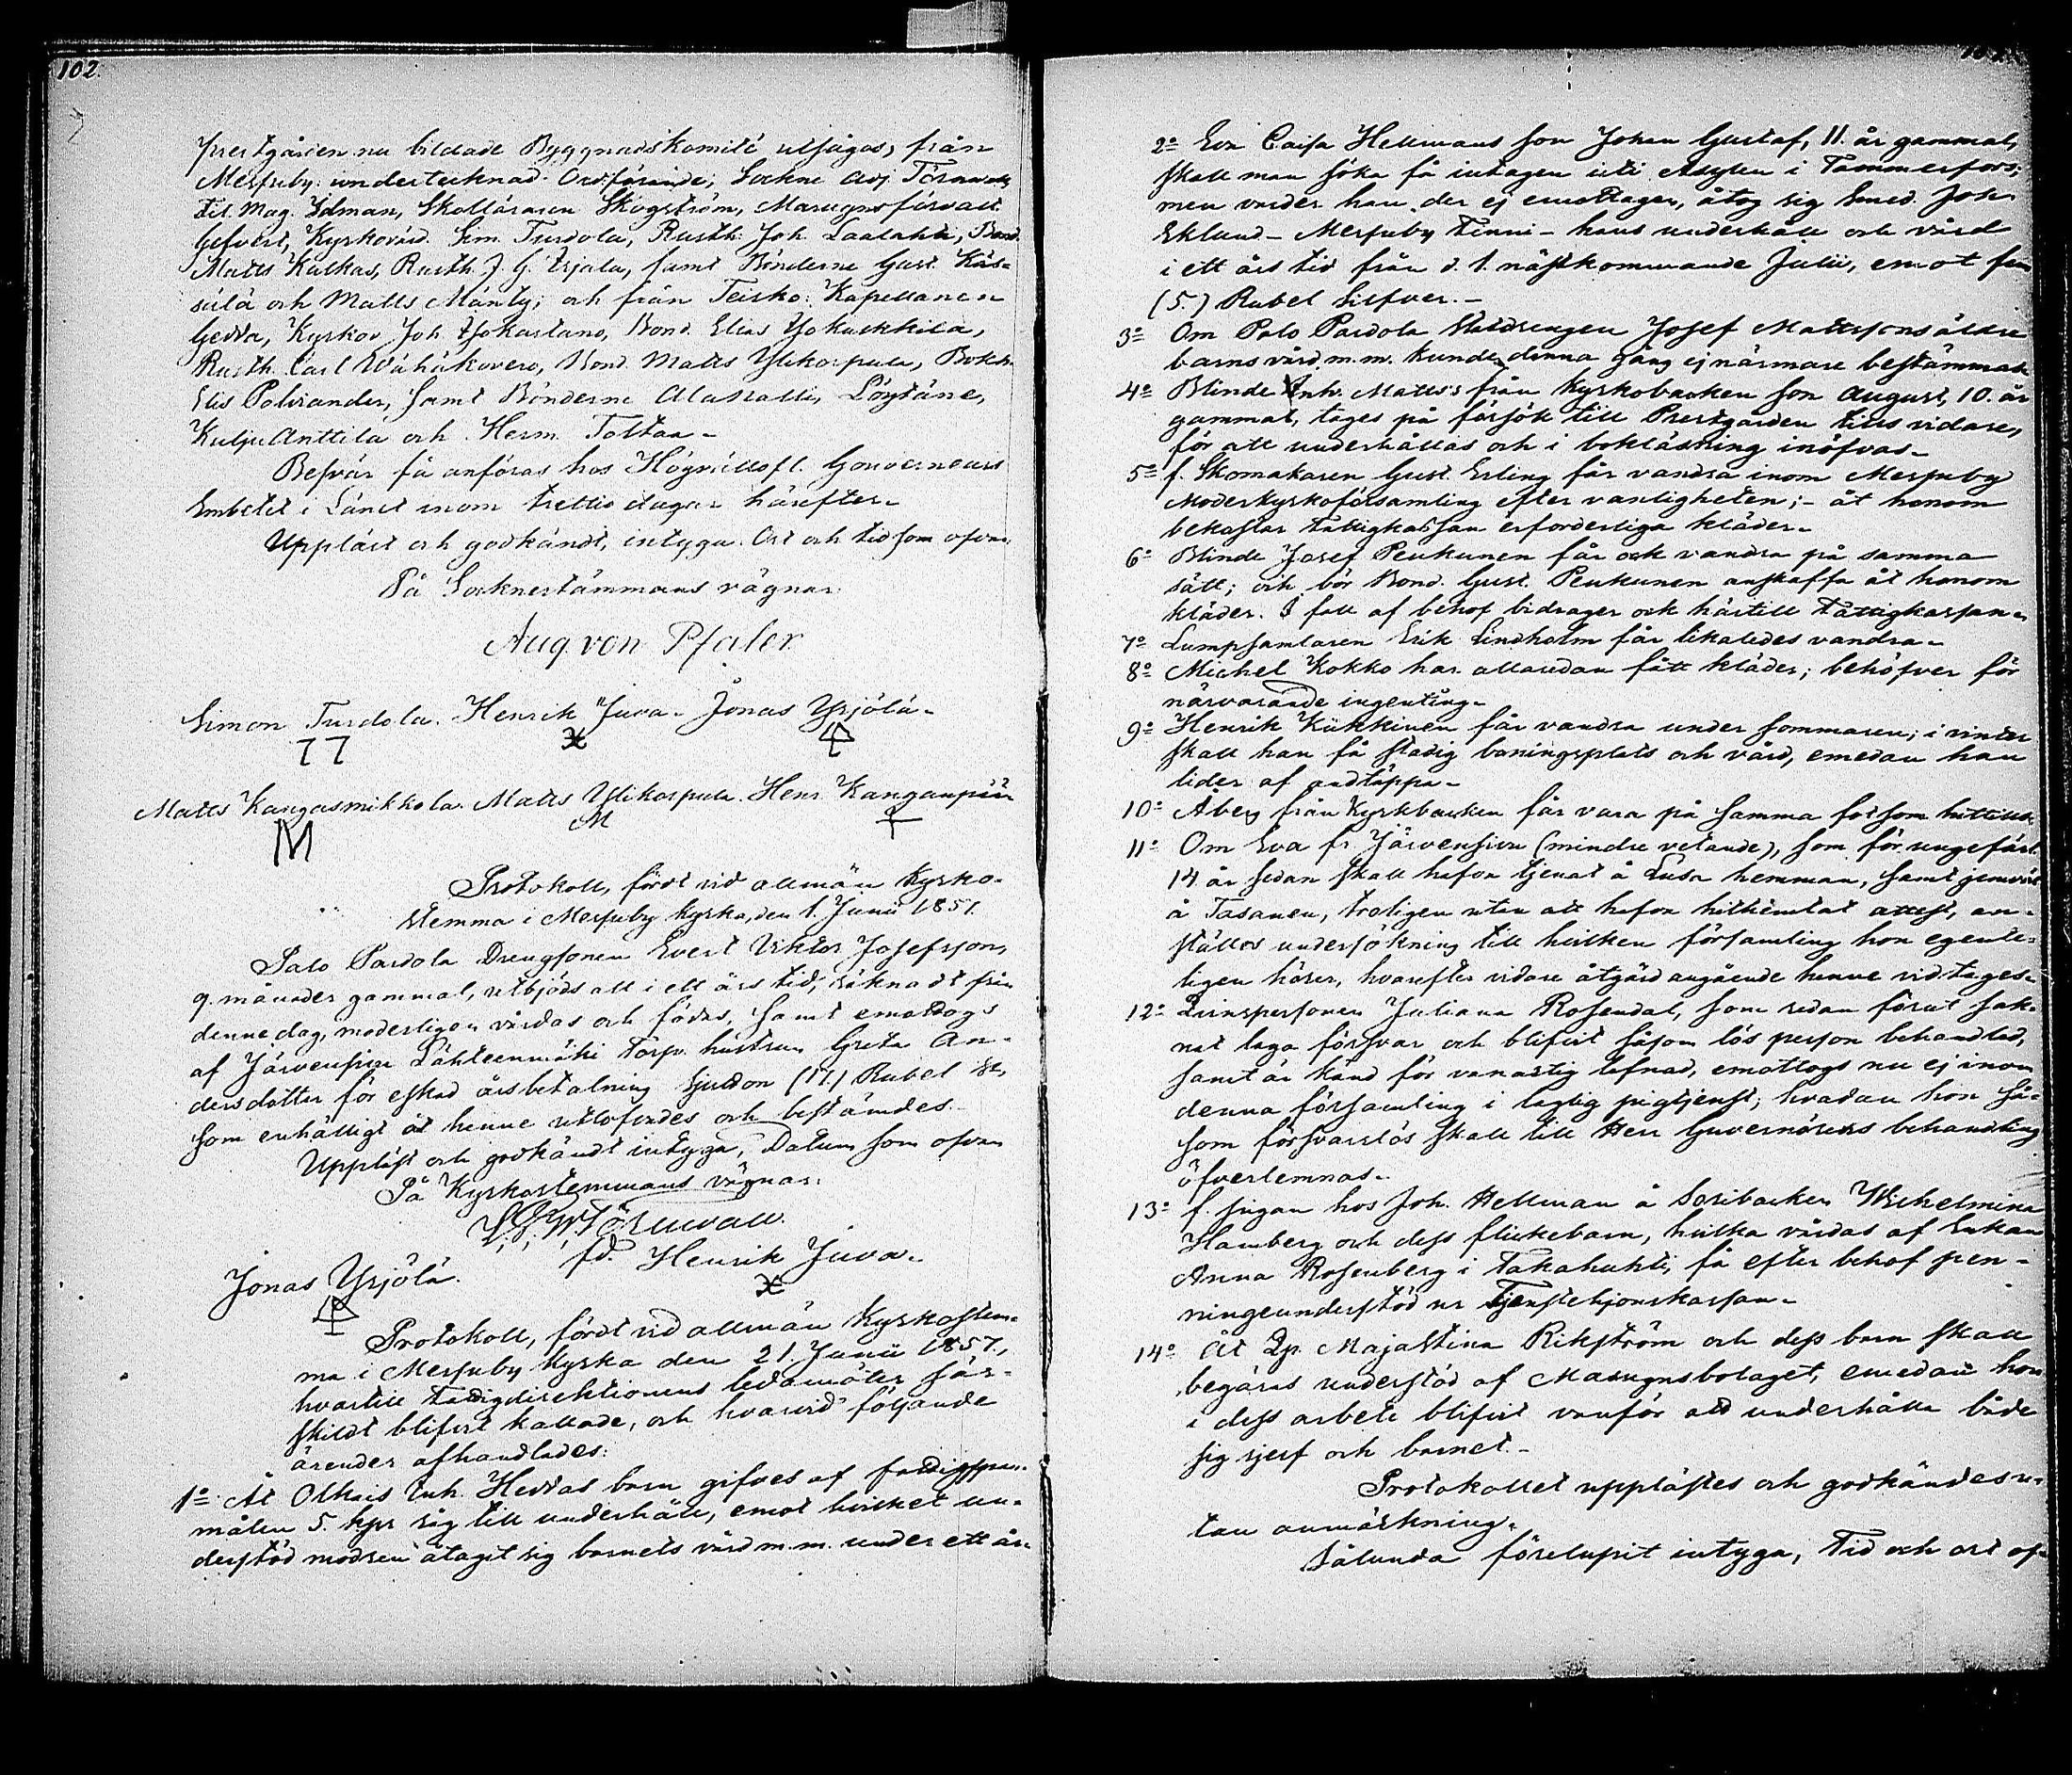 102.
prestgården nu bildade Byggnadskomité utsågos, från
Messuby: undertecknad Ordförande; Sockne Adj. Törnwall,
Tit. Mag. Idman, Skolläraren Skogström, Masugnsförvalt.
Gefvert, Kyrkovärd. Sim. Turdola, Rusth. Joh. Laalahti, Bond.
Matts Kalkas, Rusth. J. G. Erjala, samt Bönderne Gust.
och Matts Mänty; och från Teisko: Kapellanen
Gedda, Kyrkov. Joh. Bond. Elias
Rusth. Carl Wähäkovero, Bond. Matts Ylikorpula, Bokh.
Elis Polviander, samt Bönderne Alaskalli, Löytäne,
Kulju Anttila och Herm. Tottaa.
Besvär få anföras hos Högvällofl. Gouverneurs
Embetet i Länet inom trettio dagar härefter.
Uppläst och godkändt, intyga. Ort och tid som ofvan,
På Socknestämmans vägnar:
Aug. von Pfaler
Simon Turdola. Henrik Juva. Jonas Yrjölä.
Matts Kangasmikkola. Matts Ylikorpula. Henr. Kanganpää
M M
Protokoll, fördt vid allmän Kyrko-
stemma i Messuby kyrka, den 1. Junii 1857.
Palo Pardola Drengsonen Evert Viktor Josefsson,
9. månader gammal, utbjöds att i ett års tid, räknadt från
denne dag, moderligen vårdas och födas, samt emottogs
af Järvensivu Lähteenmäki Torp. hustrun Greta An-
dersdotter för eskad årsbetalning Sjutton (17.) Rubel Sr,
som enhälligt åt henne utlofvades och bestämdes.
Uppläst och godkändt intyga, Datum som ofvan
På Kyrkostemmans vägnar:
Törnwall.
Jonas Yrjölä. Henrik Juva.
Protokoll, fördt vid allmän Kyrkostem-
ma i Messuby kyrka den 21. Junii 1857,
hvartill Fattigdirektionens ledamöter sär-
skildt blifvit kallade, och hvarvid följande
ärender afhandlades:
1o Åt Olkais Inh. Heddas barn gifves af fattigspan-
målen 5. kpr råg till underhåll, emot hvilket un-
derstöd modren åtagit sig barnets vård m.m. under ett år.
2o Eva Caisa Hellmans son Johan Gustaf, 11. år gammal,
skall man söka få intagen uti Asylen i Tammerfors;
men varder han der ej emottagen, åtog sig Smed. Joh.
Eklund - Messuby Finni - hans underhåll och vård
i ett års tid från d. 1. nästkommande Julii, emot fem
(5.) Rubel Silfver.-
3o Om Palo Pardola Statdrengen Josef Mattssons äldre
barns vård m.m. kunde denna gång ej närmare bestämmas.
4o Blinde Inh. Matts's från Kyrkobacken son August, 10. år
gammal, tages på försök till Prestgården tills vidare,
för att underhållas och i bokläsning inöfvas.
5o f. Skomakaren Gust. Erling får vandra inom Messuby
Moderkyrkoförsamling efter vanligheten; - åt honom
bekostar Fattigkassan erforderliga kläder.
6o Blinde Josef Penkunen får ock vandra på samma
sätt; och bör Bond. Gust. Penkunen anskaffa åt honom
kläder. I fall af behof bidrager ock härtill Fattigkassan.
7o Lumpsamlaren Erik Lindholm får likaledes vandra.
8o Michel Kokko har allaredan fått kläder; behöfver för
närvarande ingenting.
9o Henrik Kukkinen får vandra under sommaren; i vinter
skall han få stadig boningsplats och vård, emedan han
lider af andtäppa.
10o Åberg från Kyrkbacken får vara på samma fot som hittills.
11o Om Eva fr. Järvensivu (mindre vetande), som för ungefär
14 år sedan skall hafva tjenat å Lusa hemman, samt
å Tasanen, troligen utan att hafva hithemtat attest, an-
ställes undersökning till hvilken församling hon egente-
ligen hörer, hvarefter vidare åtgärd angående henne vidtages.
12o Qvinspersonen Juliana Rosendal, som redan förut sak-
nat laga försvar och blifvit såsom lös person behandlad,
samt är känd för vanartig lefnad, emottogs nu ej inom
denna församling i laglig pigtjenst; hvadan hon så-
som försvarslös skall till Herr Guvernörens behandling
öfverlemnas.
13o f. pigan hos Joh. Hellman å Soribacken Wilhelmina
Hamberg och dess flickebarn, hvilka vårdas af Enkan
Anna Rosenberg i Takahuhti, få efter behof pen-
ningeunderstöd ur Tjenstehjonskassan.
14o Åt Qp. Maja Stina Rikström och dess barn skall
begäras understöd af Masugnsbolaget, emedan hon
i dess arbete blifvit vanför att underhålla både
sig sjelf och barnet.-
Protokollet upplästes och godkändes u-
tan anmärkning.
Sålunda förelupit intyga, Tid och ort of-